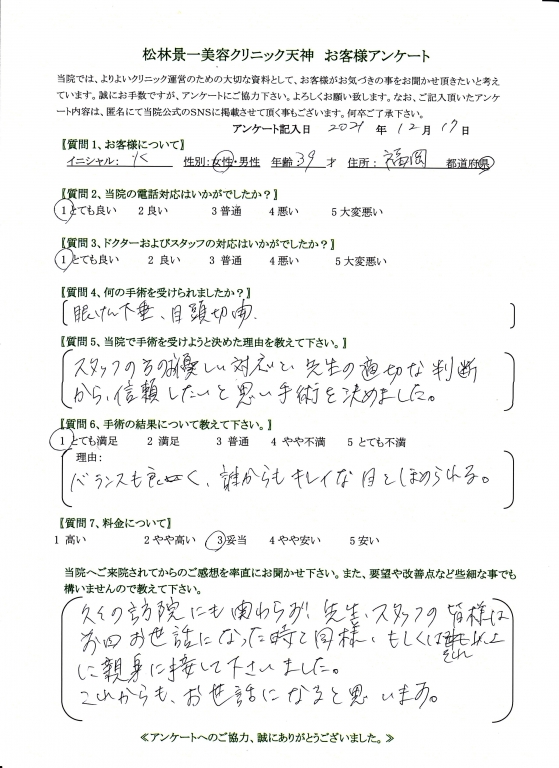 松林景一美容クリニック天神　お客様アンケート
当院では、よりよいクリニック運営のための大切な資料として、お客様がお気づきの事をお聞かせ頂きたいと考え
ています。誠にお手数ですが、アンケートにご協力下さい。よろしくお願い致します。なお、ご記入頂いたアンケ
ート内容は、匿名にて当院公式のSNSに掲載させて頂く事もございます。何卒ご了承下さい。
アンケート記入日　2021　年　12　月　17　日
【質問1、お客様について】
イニシャル：　K　性別：女性・男性　年齢　39　才　住所：　福岡　都道府県
【質問2、当院の電話対応はいかがでしたか？】
1 とても良い　2 良い　3 普通　4 悪い　5 大変悪い
【質問3、ドクターおよびスタッフの対応はいかがでしたか？】
1 とても良い　2 良い　3 普通　4 悪い　5 大変悪い
【質問4、何の手術を受けられましたか？】
眼けん下垂、目頭切開
【質問5、当院で手術を受けようと決めた理由を教えて下さい。】
スタッフの方の優しい対応と、先生の適切な判断
から、信頼したいと思い手術を決めました。
【質問6、手術の結果について教えて下さい。】
1 とても満足　2 満足　3 普通　4 やや不満　5 とても不満
理由：
バランスも良く、誰からもキレイな目とほめられる。
【質問7、料金について】
1 高い　2 やや高い　3 妥当　4 やや安い　5 安い
当院へご来院されてからのご感想を率直にお聞かせ下さい。また、要望や改善点など些細な事でも
構いませんので教えて下さい。
久々の訪院にも関わらず、先生、スタッフの皆様は
前回お世話になった時と同様、もしくはそれ以上
に親身に接して下さいました。
これからも、お世話になると思います。
≪アンケートへのご協力、誠にありがとうございました。≫